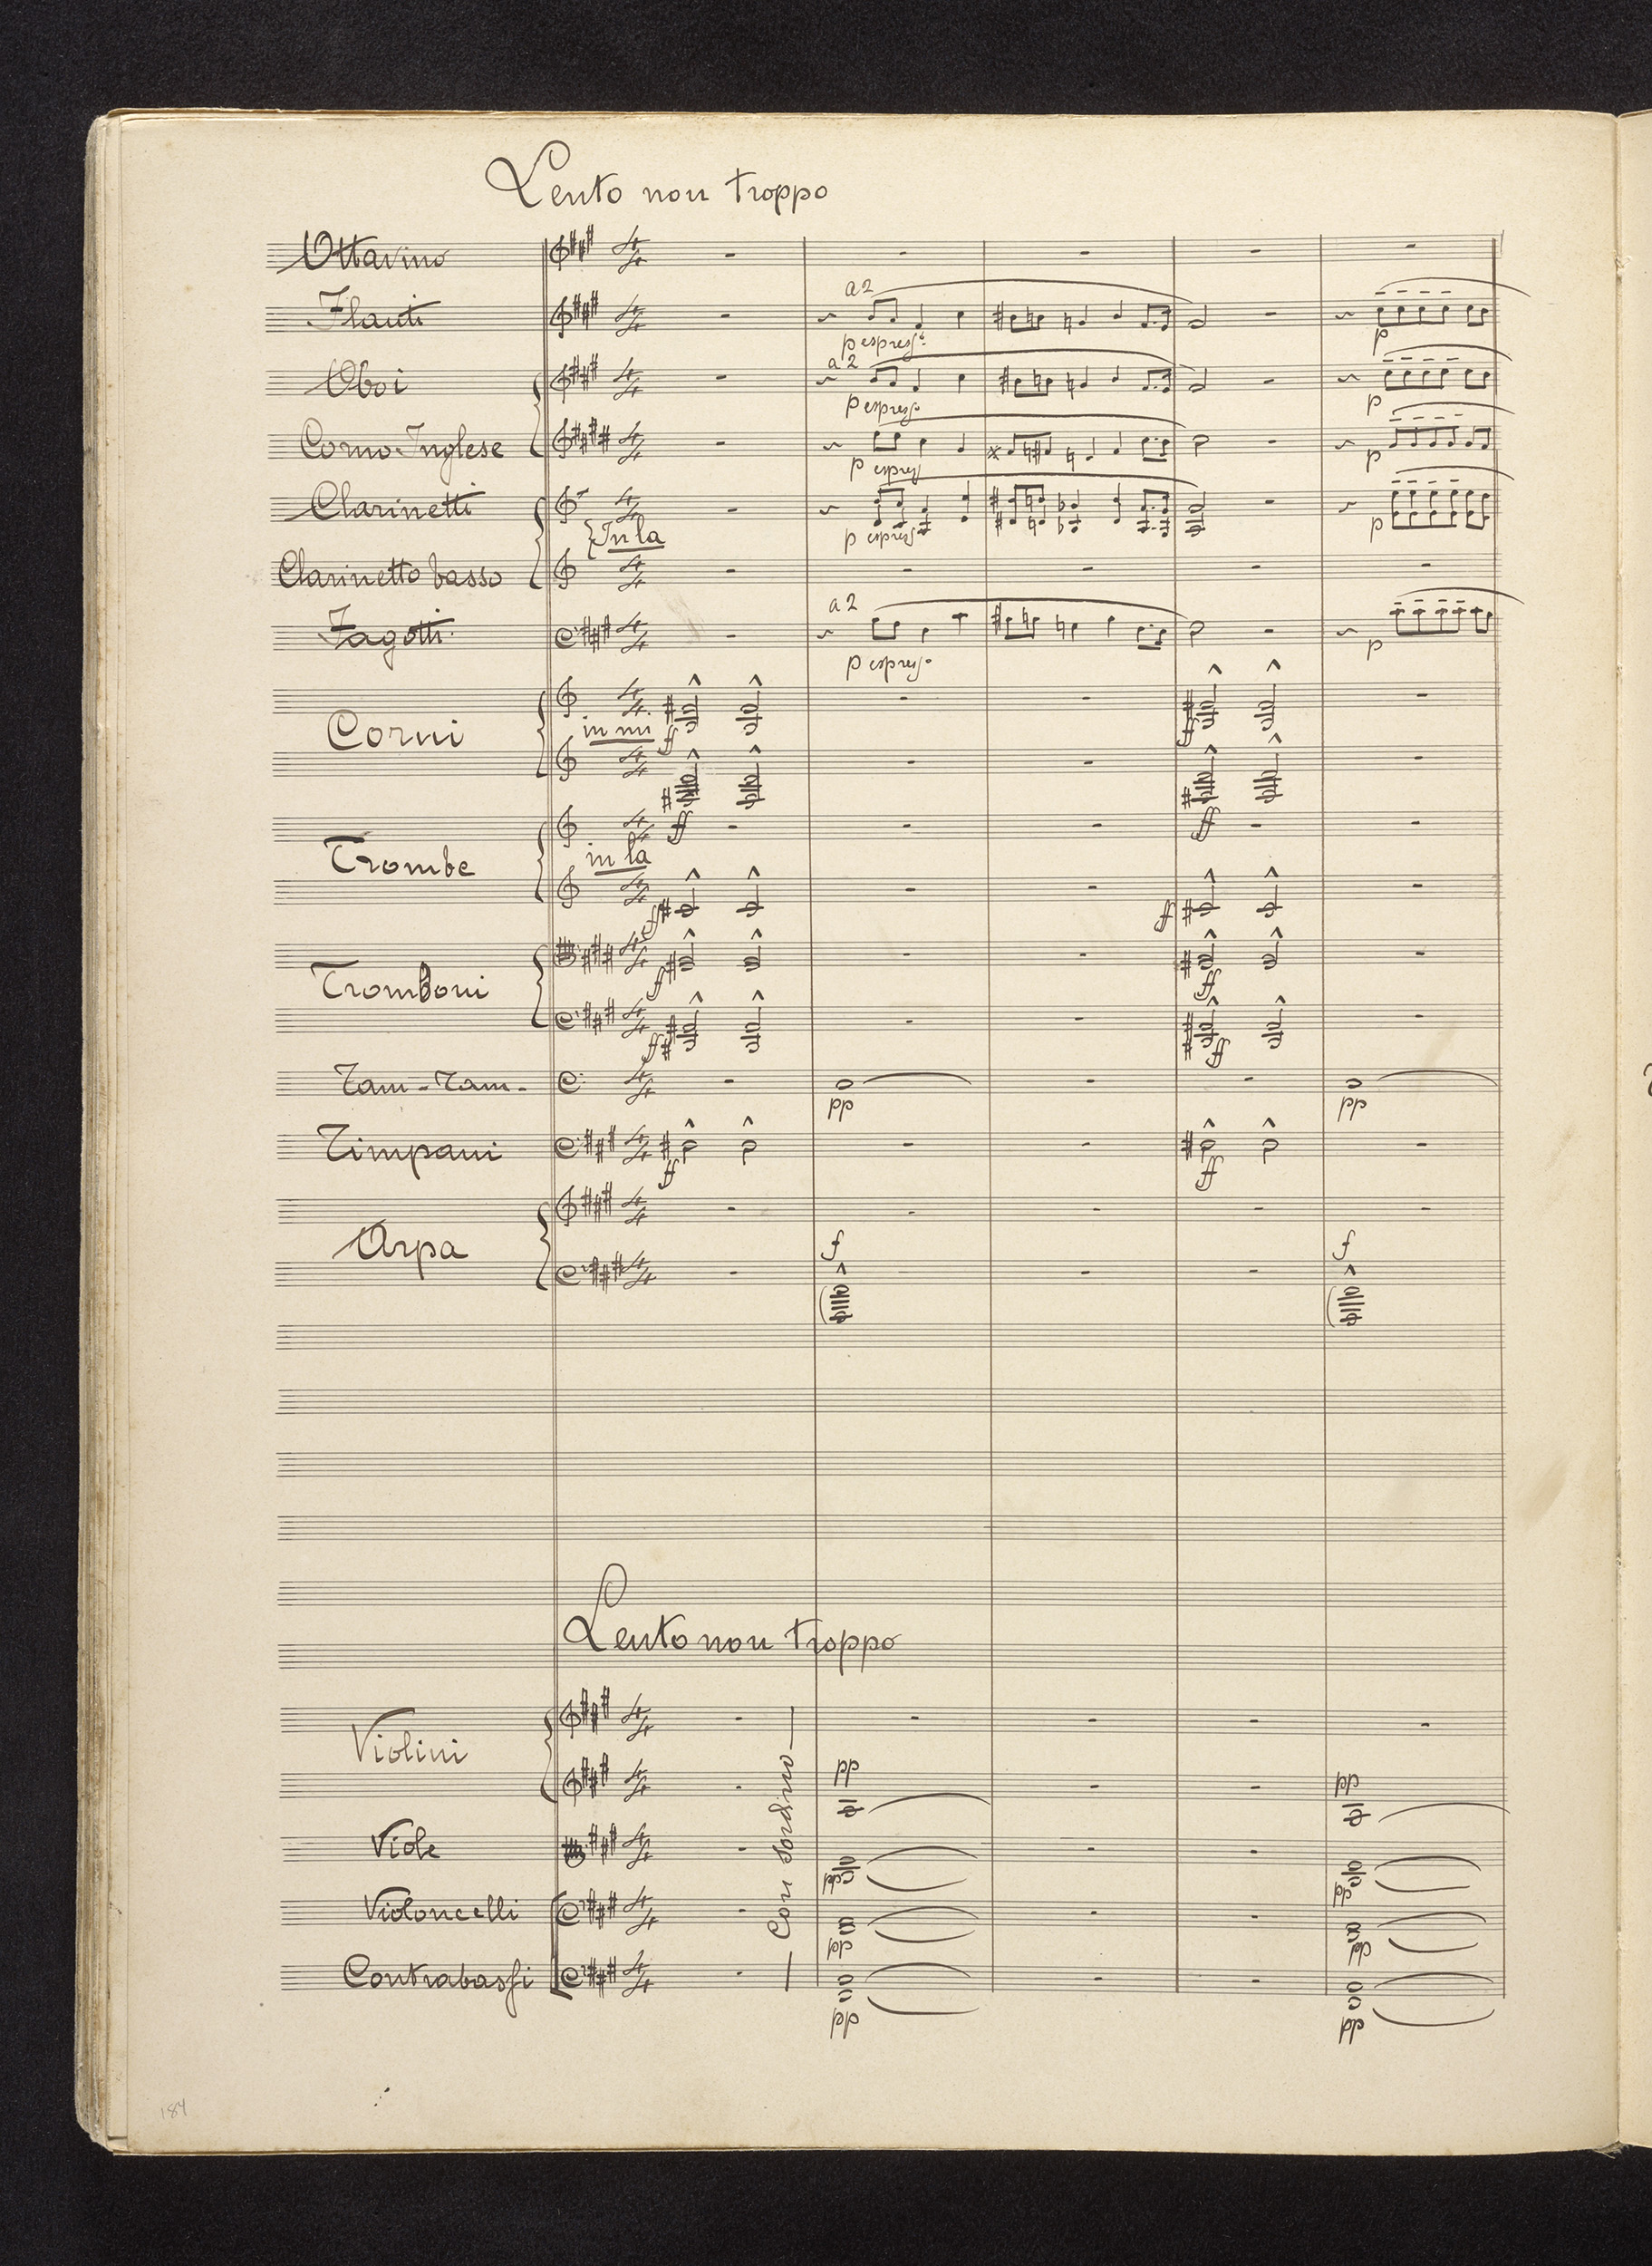 Lento non troppo
Ottavino
a 2
Flauti
p espress.º
p
a 2
Oboi
p espress.º
p
Corno Inglese
p espress
p
Clarinetti
p espress.º
p
In la
Clarinetto basso
a 2
Fagotti
p espress.º
p
Corni
in mi
ff
ff
ff
ff
Trombe
in la
ff
ff
Tromboni
ff
ff
ff
ff
Tam-Tam-
pp
pp
Timpani
ff
ff
Arpa
f
f
Lento non troppo
Violini
pp
pp
Con sordino
Viole
pp
pp
Violoncelli
pp
pp
Contrabassi
pp
pp
184